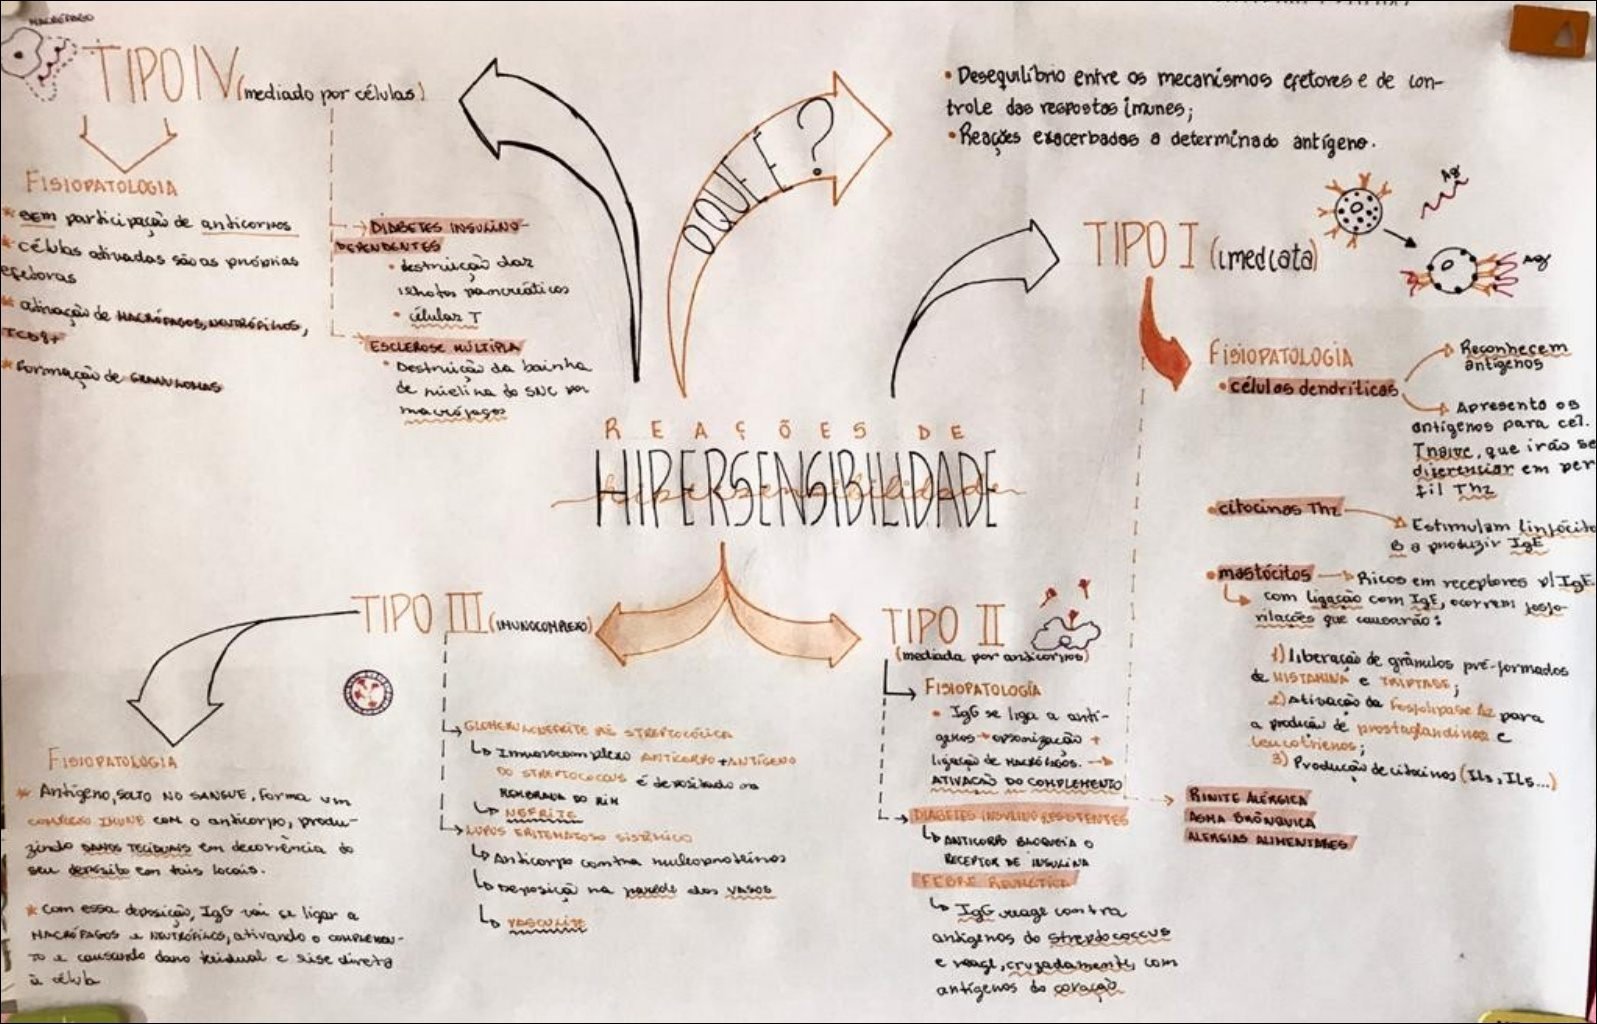 MACRÓFAGO
TIPO IV (mediado por células)
FISIOPATOLOGIA
* SEM participação de anticorpos
* células ativadas são as próprias
efetoras
* ativação de MACRÓFAGOS, NEUTRÓFILOS,
TCD8+
* Formação de GRANULOMAS
DIABETES INSULINO-
DEPENDENTES
• destruição das
ilhotas pancreáticas
• células T
ESCLEROSE MÚLTIPLA
• Destruição da bainha
de mielina do SNC por
macrófagos
O QUE É ?
• Desequilíbrio entre os mecanismos efetores e de con-
trole das respostas imunes;
• Reações exacerbadas a determinado antígeno.
REAÇÕES DE
HIPERSENSIBILIDADE
hipersensibilidade
TIPO I (imediata)
Ag
Ag
FISIOPATOLOGIA
• células dendríticas
Reconhecem
antígenos
Apresenta os
antígenos para cel.
Tnaive, que irão se
diferenciar em per
fil Th2
• citocinas Th2
Estimulam linfócito
B a produzir IgE
• mastócitos → Ricos em receptores p/ IgE
com ligação com IgE, ocorrem fosfo-
rilações que causarão:
1) liberação de grânulos pré-formados
de HISTAMINA e TRIPTASE;
2) Ativação da Fosfolipase A2 para
a produção de prostaglandinas e
leucotrienos;
3) Produção de citocinas (IL3, IL5...)
RINITE ALÉRGICA
ASMA BRÔNQUICA
ALERGIAS ALIMENTARES
TIPO II
(mediada por anticorpos)
FISIOPATOLOGIA
• IgG se liga a antí-
genos → opsonização +
ligação de MACRÓFAGOS. →
ATIVAÇÃO DO COMPLEMENTO
DIABETES INSULINO RESISTENTES
ANTICORPO BLOQUEIA O
RECEPTOR DE INSULINA
FEBRE REUMÁTICA
IgG reage contra
antígenos do Streptococcus
e reage, cruzadamente, com
antígenos do coração
TIPO III (IMUNOCOMPLEXO)
GLOMERULONEFRITE PÓS STREPTOCÓCICA
Imunocomplexo ANTICORPO + ANTÍGENO
DO STREPTOCOCCUS é depositado na
MEMBRANA DO RIM
NEFRITE
LUPUS ERITEMATOSO SISTÊMICO
Anticorpo contra nucleoproteínas
Deposição na parede dos vasos
VASCULITE
FISIOPATOLOGIA
* Antígeno, SOLTO NO SANGUE, forma um
COMPLEXO IMUNE com o anticorpo, produ-
zindo DANOS TECIDUAIS em decorrência do
seu depósito em tais locais.
* Com essa deposição, IgG vai se ligar a
MACRÓFAGOS e NEUTRÓFILOS, ativando o COMPLEMEN-
TO e causando dano tecidual e lise direta
à célula